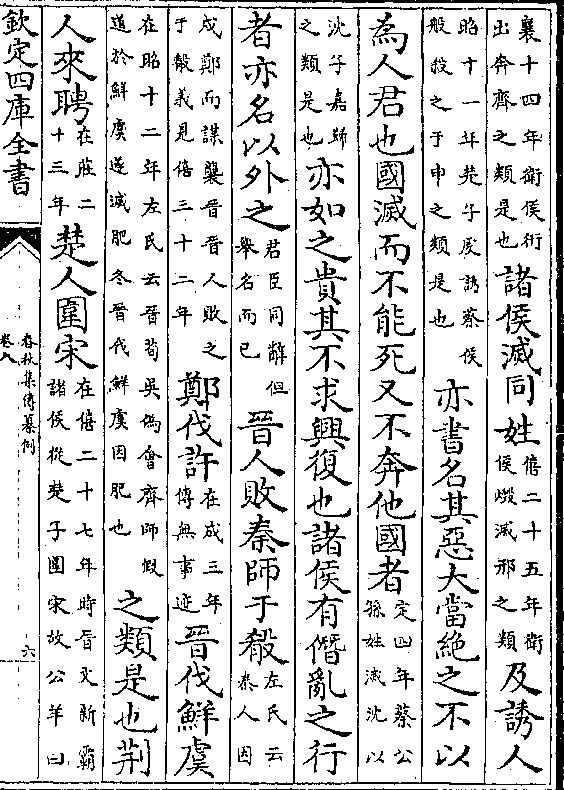 襄十四年衛侯衎
出奔齊之類是也
諸侯滅同姓
僖二十五年衛
侯燬滅邢之類
及誘人
昭十一年楚子虔誘蔡侯
般殺之于申之類是也
亦書名其惡大當絶之不以
為人君也國滅而不能死又不奔他國者
定四年蔡公
孫姓滅沈以
沈子嘉歸
之類是也
亦如之貴其不求興復也諸侯有僭亂之行
者亦名以外之
君臣同辭但
舉名而已
晉人敗秦師于殽
左氏云
秦人因
成鄭而謀襲晉晉人敗之
于殽義見僖三十二年
鄭伐許
在成三年
傳無事迹
晉伐鮮虞
在昭十二年左氏云晉荀吳偽會齊師假
道於鮮虞遂滅肥冬晉伐鮮虞因肥也
之類是也荆
人來聘
在莊二
十三年
楚人圍宋
在僖二十七年時晉文新霸
諸侯從楚子圍宋故公羊曰
欽定四庫全書
春秋集傳纂例
卷八
六